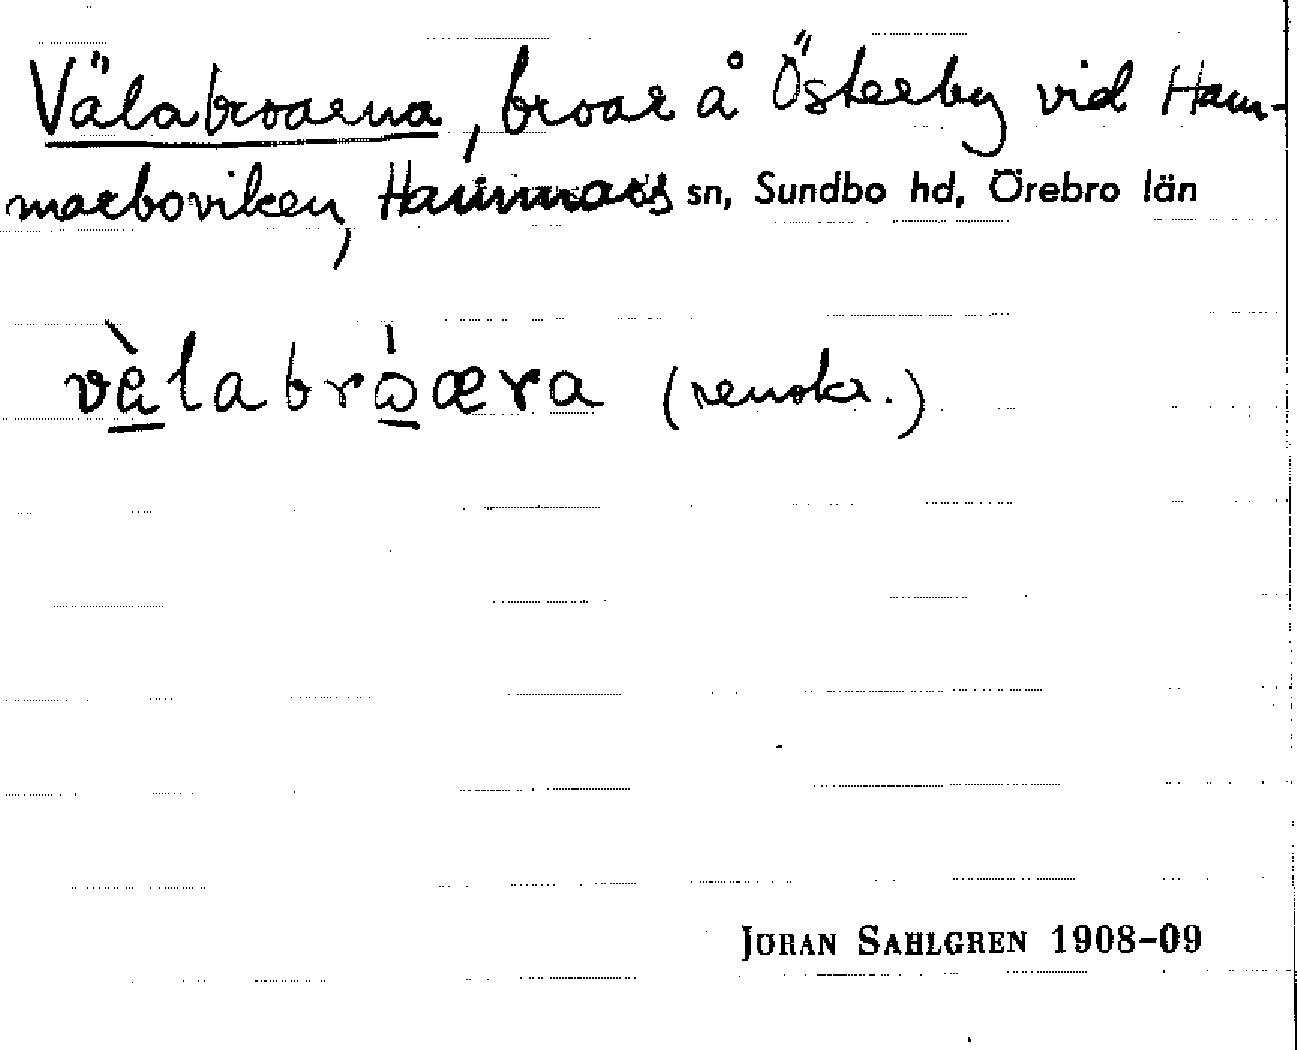 Välabroarna, broar å Österby vid Ham-
marboviken, Hammars sn, Sundbo hd, Örebro län
vèlabròæra (renskr.)
JÖRAN SAHLGREN 1908-09